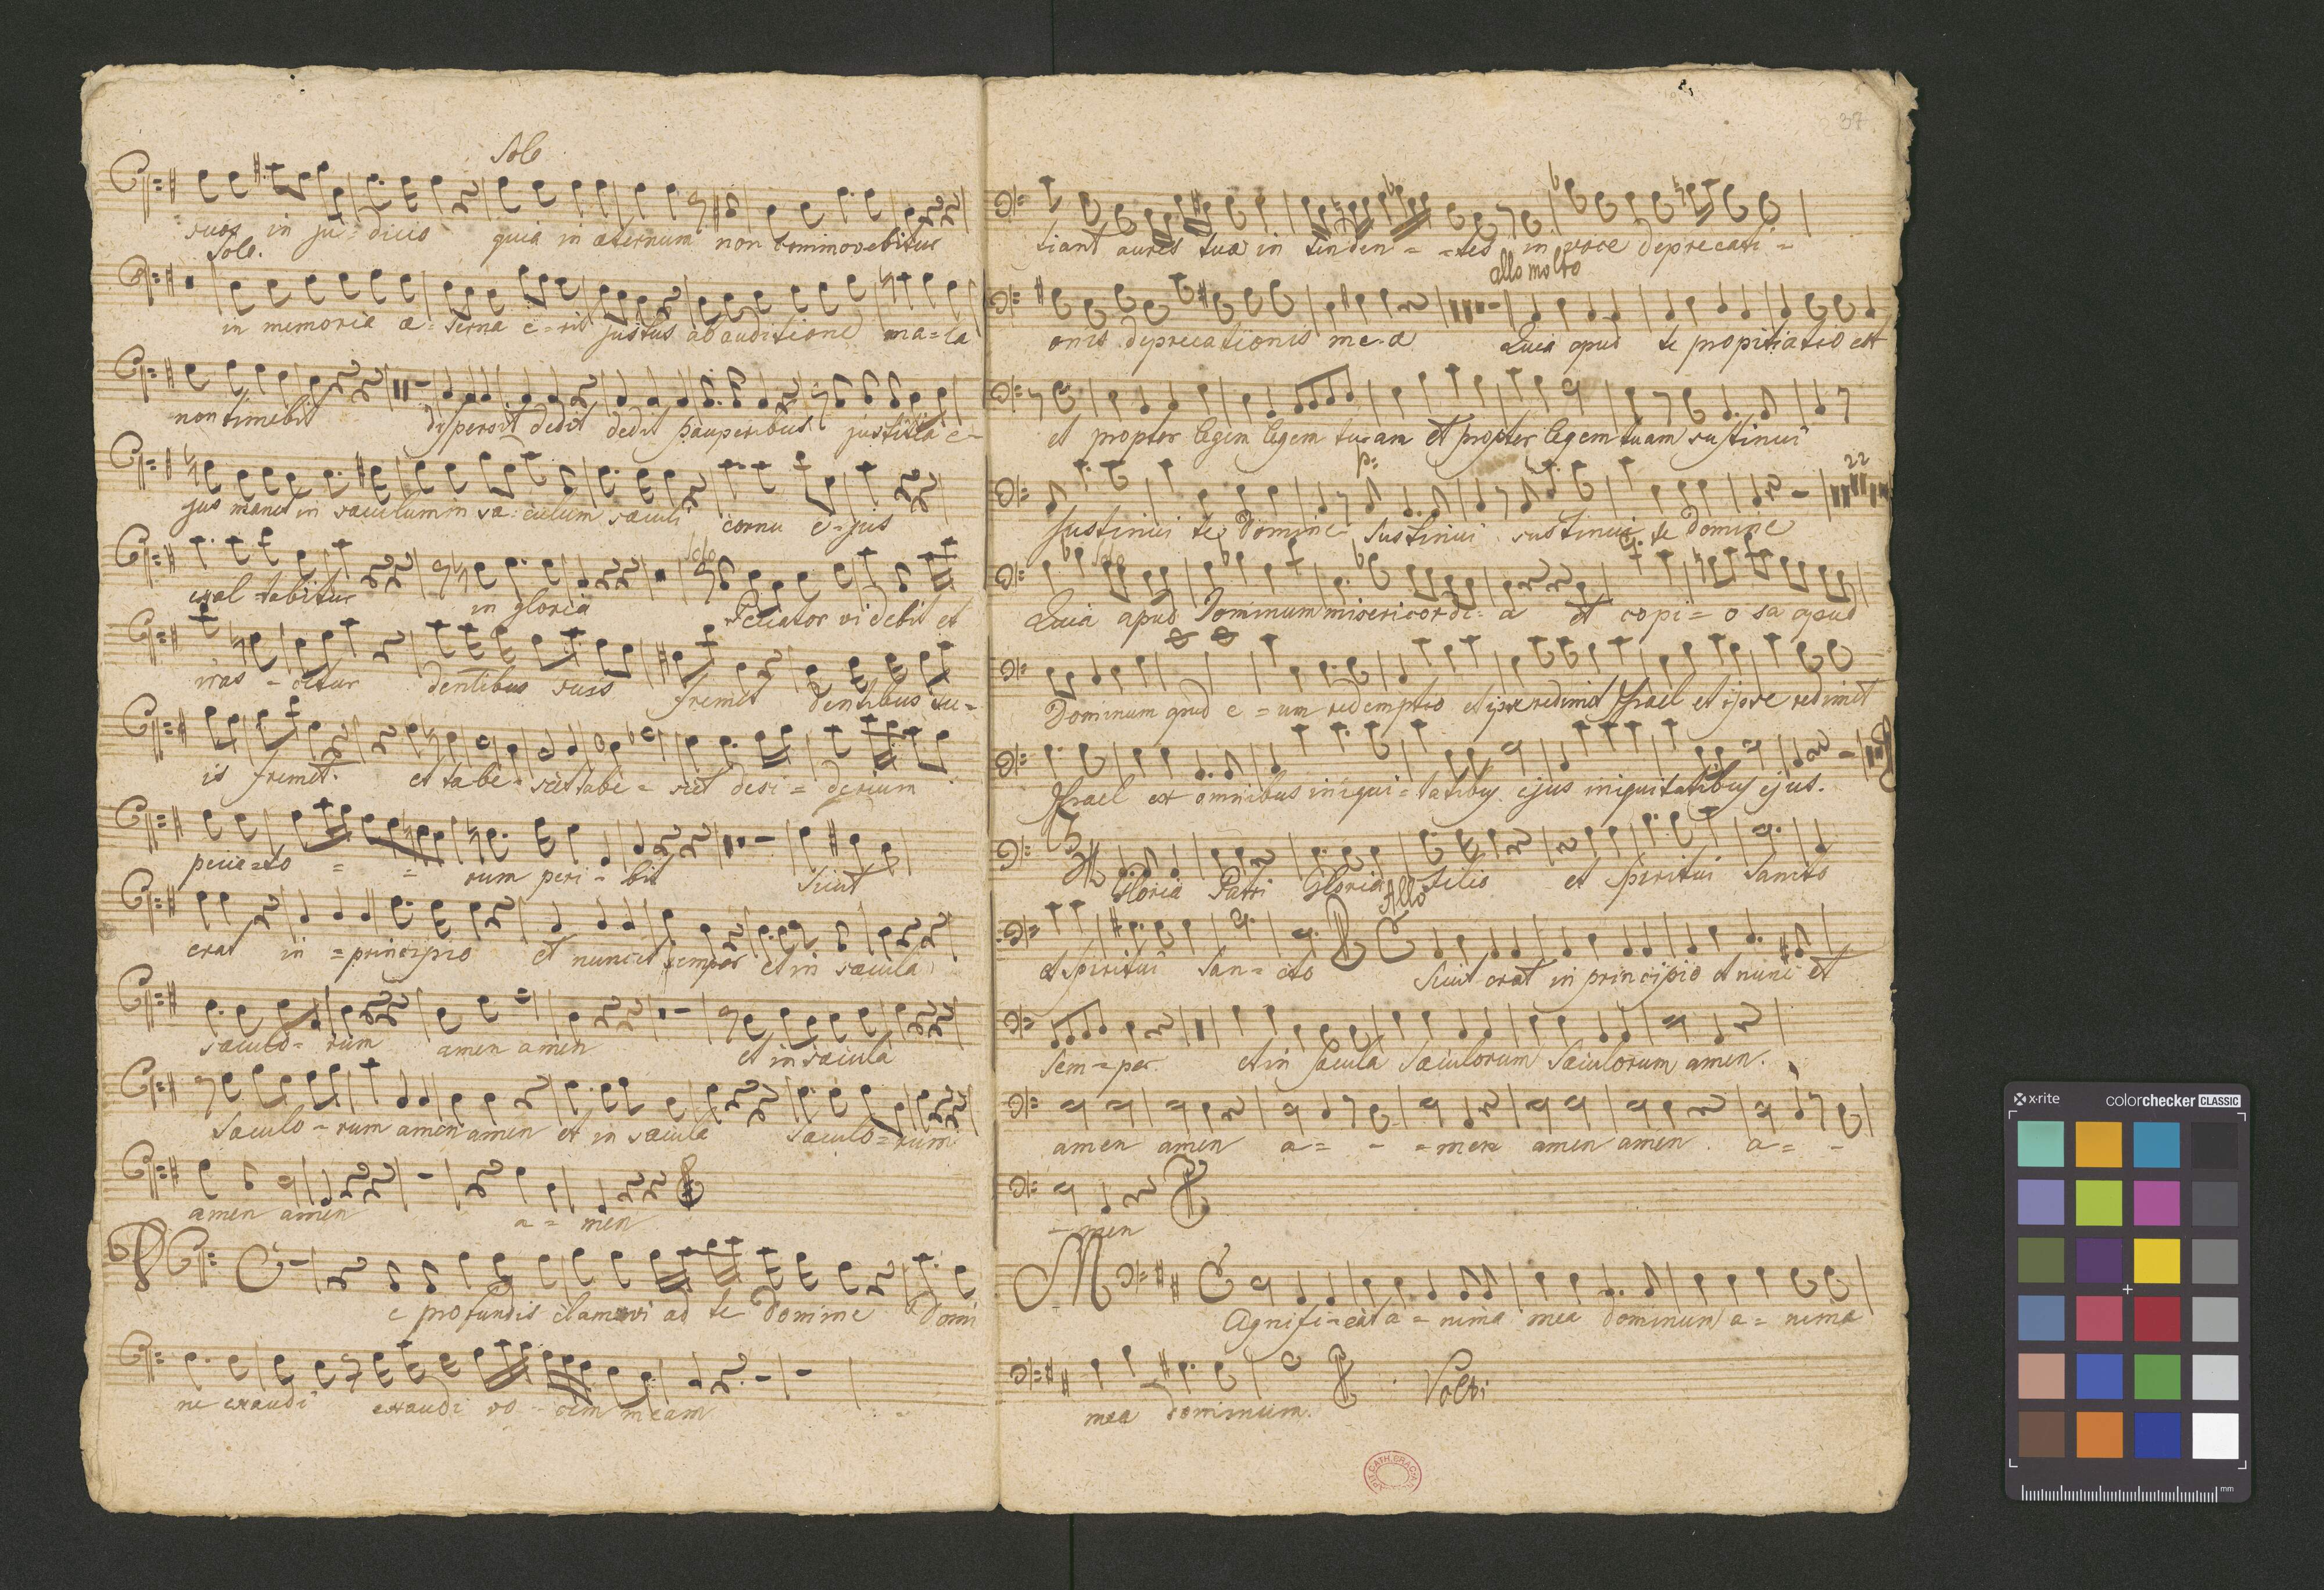 Solo
suos in ju = dicio quia in æternum non commovebitur
Solo.
in memoria æ = terna e = rit justus ab auditione ma = la
non timebit dispersit dedit dedit pauperibus justitia e =
jus manet in sæculum in sæ = culum sæculi cornu e = jus
exal = tabitur in gloria Peccator videbit et
solo
iras = citur dentibus suis fremet dentibus su =
is fremet. et tabe = scet tabe = scet desi = derium
pecca = to = = rum peri = bit Sicut
erat in = principio et nunc et semper et in sæcula
sæculo = rum amen amen et in sæcula
sæculo = rum amen amen et in sæcula sæculo = rum
amen amen a = men
D
e profundis clamavi ad te Domine Domi
ne exaudi exaudi vo = cem meam
37
tiant aures tuæ in tenden = = tes in voce deprecati =
allo molto
onis deprecationis me = æ Quia apud te propitiatio est
et propter legem legem tu = am et propter legem tuam sustinui
p:
22
sustinui te Domine sustinui sustinui te Domine
Quia apud Dominum misericordi = a et copi = o sa apud
Dominum apud e = um redemptio et ipse redimet Israel et ipse redimet
Israel ex omnibus iniqui = tatibus ejus iniquitatibus ejus.
3/4
Gloria Patri Gloria Filio et Spiritui Sancto
Allo
et Spiritui San = cto Sicut erat in principio et nunc et
Sem = per et in sæcula sæculorum sæculorum amen.
amen amen a = = = men amen amen a = =
= men
M
agnifi = cat a = nima mea Dominum a = nima
mea Dominum.
Volti